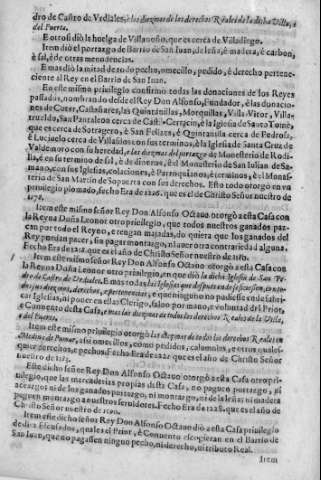 dro de Castro de Vrdiales, è los diezmos de los derechos Reales de la dicha Villa, e
del Puerto.
E otrosi diò la huelga de Villanosio, que es cerca de Villadiego.
Item diò el portazgo de Barrio de San Iuan, de leña, è madera, è carbon,
è sal, è de otras menudencias.
E mas diò la mitad de todo pecho, omecillo, pedido, è derecho pertene-
ciente al Rey en el Barrio de San Iuan.
En este mismo privilegio confirmò todas las donaciones de los Reyes
passados, nombrando desde el Rey Don Alfonso, Fundador, è las donacio-
nes de Castañares, las Quintanillas, Morquillas, Villa-Vitor, Villa-
San Pantaleon cerca de è la Iglesia de Santo Tomè,
que es cerca de è San Felizes, è Quintanilla cerca de Pedrosa,
è cerca de Villasidro con sus terminos, è la Iglesia de Santa Cruz de
Valdemoro con su heredad, è los diezmos del portazgo de Monesterio de Rodi-
lla, è en su termino de sal, è de dineros, è el Monesterio de San Iulian de
con sus Iglesias, colaciones, è Parroquianos, è terminos, è el Monas-
terio de San Martin de con sus derechos. Esto todo otorgò en vn
privilegio plomado, fecho Era de 1216. que es el de Christo Señor nuestro de
1178.
Item este mismo señor Rey Don Alfonso Octavo otorgò a esta Casa con
la Reyna Doña Leonor otro privilegio, que todos nuestros ganados paz-
can por todo el Reyno, è tengan majadas, do quiera que los ganados del
Rey pueden pacer, sin pagar montazgo, ni aver otra contrariedad alguna.
Fecho Era de que es el año de Christo Señor nuestro de
Item este mismo señor Rey Don Alfonso Octavo otorgò a esta Casa con
la Reyna Doña Leonor otro privilegio, en que diò la dicha Iglesia de San Pe-
dro de Castro de Vrdiales. E mas todas las Iglesias que despues en
diezmos, derechos, è pertenencias, è que ninguno no pudiesse en de fabri-
car Iglesias, ni poner en ellas Clerigo, salvo por mano, è voluntad del Prior,
è Convento desta Casa, è mas los diezmos de todos los derechos Reales de la Villa,
è del Puerto.
Item este mismo privilegio otorgò los diezmos de todos los derechos Reales en
Medina de Pumar, assi omecillos, como pedidos, calumnias, è otros quales-
quier derechos, è pechos. Fecho Era de que es el año de Christo Señor
nuestro de
Este dicho señor Rey Don Alfonso Octavo otorgò a esta Casa otro pri-
vilegio, que las mercaderias propias desta Casa, no paguen portazgo, ni
acerca de los ganados portazgo, ni montazgo, ni de la leña, ni madera
paguen montazgo a nuestros servidores. Fecho Era de 1228. que es el año de
Christo Señor nuestro de 1190.
Item este dicho señor Rey Don Alfonso Octavo diò a esta Casa privilegio
de diez Escusados, quales el Prior, è Convento escogieran en el Barrio de
San Iuan, que no paguen ningun pecho, ni derecho, ni tributo Real.
Item